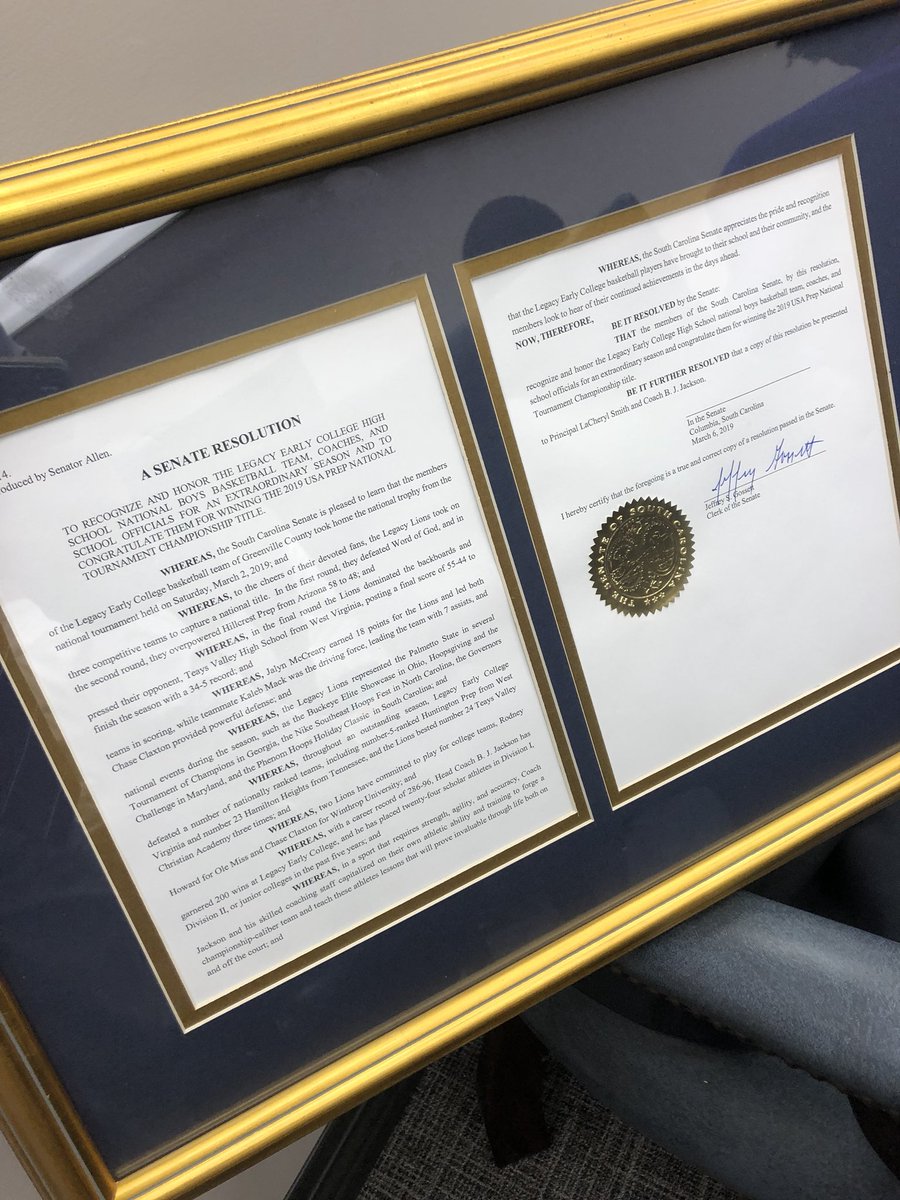 4.
oduced by Senator Allen.
A SENATE RESOLUTION
TO RECOGNIZE AND HONOR THE LEGACY EARLY COLLEGE HIGH
SCHOOL NATIONAL BOYS BASKETBALL TEAM, COACHES, AND
SCHOOL OFFICIALS FOR AN EXTRAORDINARY SEASON AND TO
CONGRATULATE THEM FOR WINNING THE 2019 USA PREP NATIONAL
TOURNAMENT CHAMPIONSHIP TITLE.
WHEREAS, the South Carolina Senate is pleased to learn that the members
of the Legacy Early College basketball team of Greenville County took home the national trophy from the
national tournament held on Saturday, March 2, 2019; and
WHEREAS, to the cheers of their devoted fans, the Legacy Lions took on
three competitive teams to capture a national title. In the first round, they defeated Word of God, and in
the second round, they overpowered Hillcrest Prep from Arizona 58 to 48; and
WHEREAS, in the final round the Lions dominated the backboards and
pressed their opponent, Teays Valley High School from West Virginia, posting a final score of 55-44 to
finish the season with a 34-5 record; and
WHEREAS, Jalyn McCreary earned 18 points for the Lions and led both
teams in scoring, while teammate Kaleb Mack was the driving force, leading the team with 7 assists, and
Chase Claxton provided powerful defense; and
WHEREAS, the Legacy Lions represented the Palmetto State in several
national events during the season, such as the Buckeye Elite Showcase in Ohio, Hoopsgiving and the
Tournament of Champions in Georgia, the Nike Southeast Hoops Fest in North Carolina, the Governors
Challenge in Maryland, and the Phenom Hoops Holiday Classic in South Carolina; and
WHEREAS, throughout an outstanding season, Legacy Early College
defeated a number of nationally ranked teams, including number-5-ranked Huntington Prep from West
Virginia and number 23 Hamilton Heights from Tennessee, and the Lions bested number 24 Teays Valley
Christian Academy three times; and
WHEREAS, two Lions have committed to play for college teams. Rodney
Howard for Ole Miss and Chase Claxton for Winthrop University; and
WHEREAS, with a career record of 286-96, Head Coach B. J. Jackson has
garnered 200 wins at Legacy Early College, and he has placed twenty-four scholar athletes in Division I,
Division II, or junior colleges in the past five years; and
WHEREAS, in a sport that requires strength, agility, and accuracy, Coach
Jackson and his skilled coaching staff capitalized on their own athletic ability and training to forge a
championship-caliber team and teach these athletes lessons that will prove invaluable through life both on
and off the court; and
WHEREAS, the South Carolina Senate appreciates the pride and recognition
that the Legacy Early College basketball players have brought to their school and their community, and the
members look to hear of their continued achievements in the days ahead.
NOW, THEREFORE,
BE IT RESOLVED by the Senate:
THAT the members of the South Carolina Senate, by this resolution,
recognize and honor the Legacy Early College High School national boys basketball team, coaches, and
school officials for an extraordinary season and congratulate them for winning the 2019 USA Prep National
Tournament Championship title.
BE IT FURTHER RESOLVED that a copy of this resolution be presented
to Principal LaCheryl Smith and Coach B. J. Jackson.
In the Senate
Columbia, South Carolina
March 6, 2019
I hereby certify that the foregoing is a true and correct copy of a resolution passed in the Senate.
Jeffrey Gossett
Jeffrey S. Gossett
Clerk of the Senate
THE SENATE OF SOUTH CAROLINA